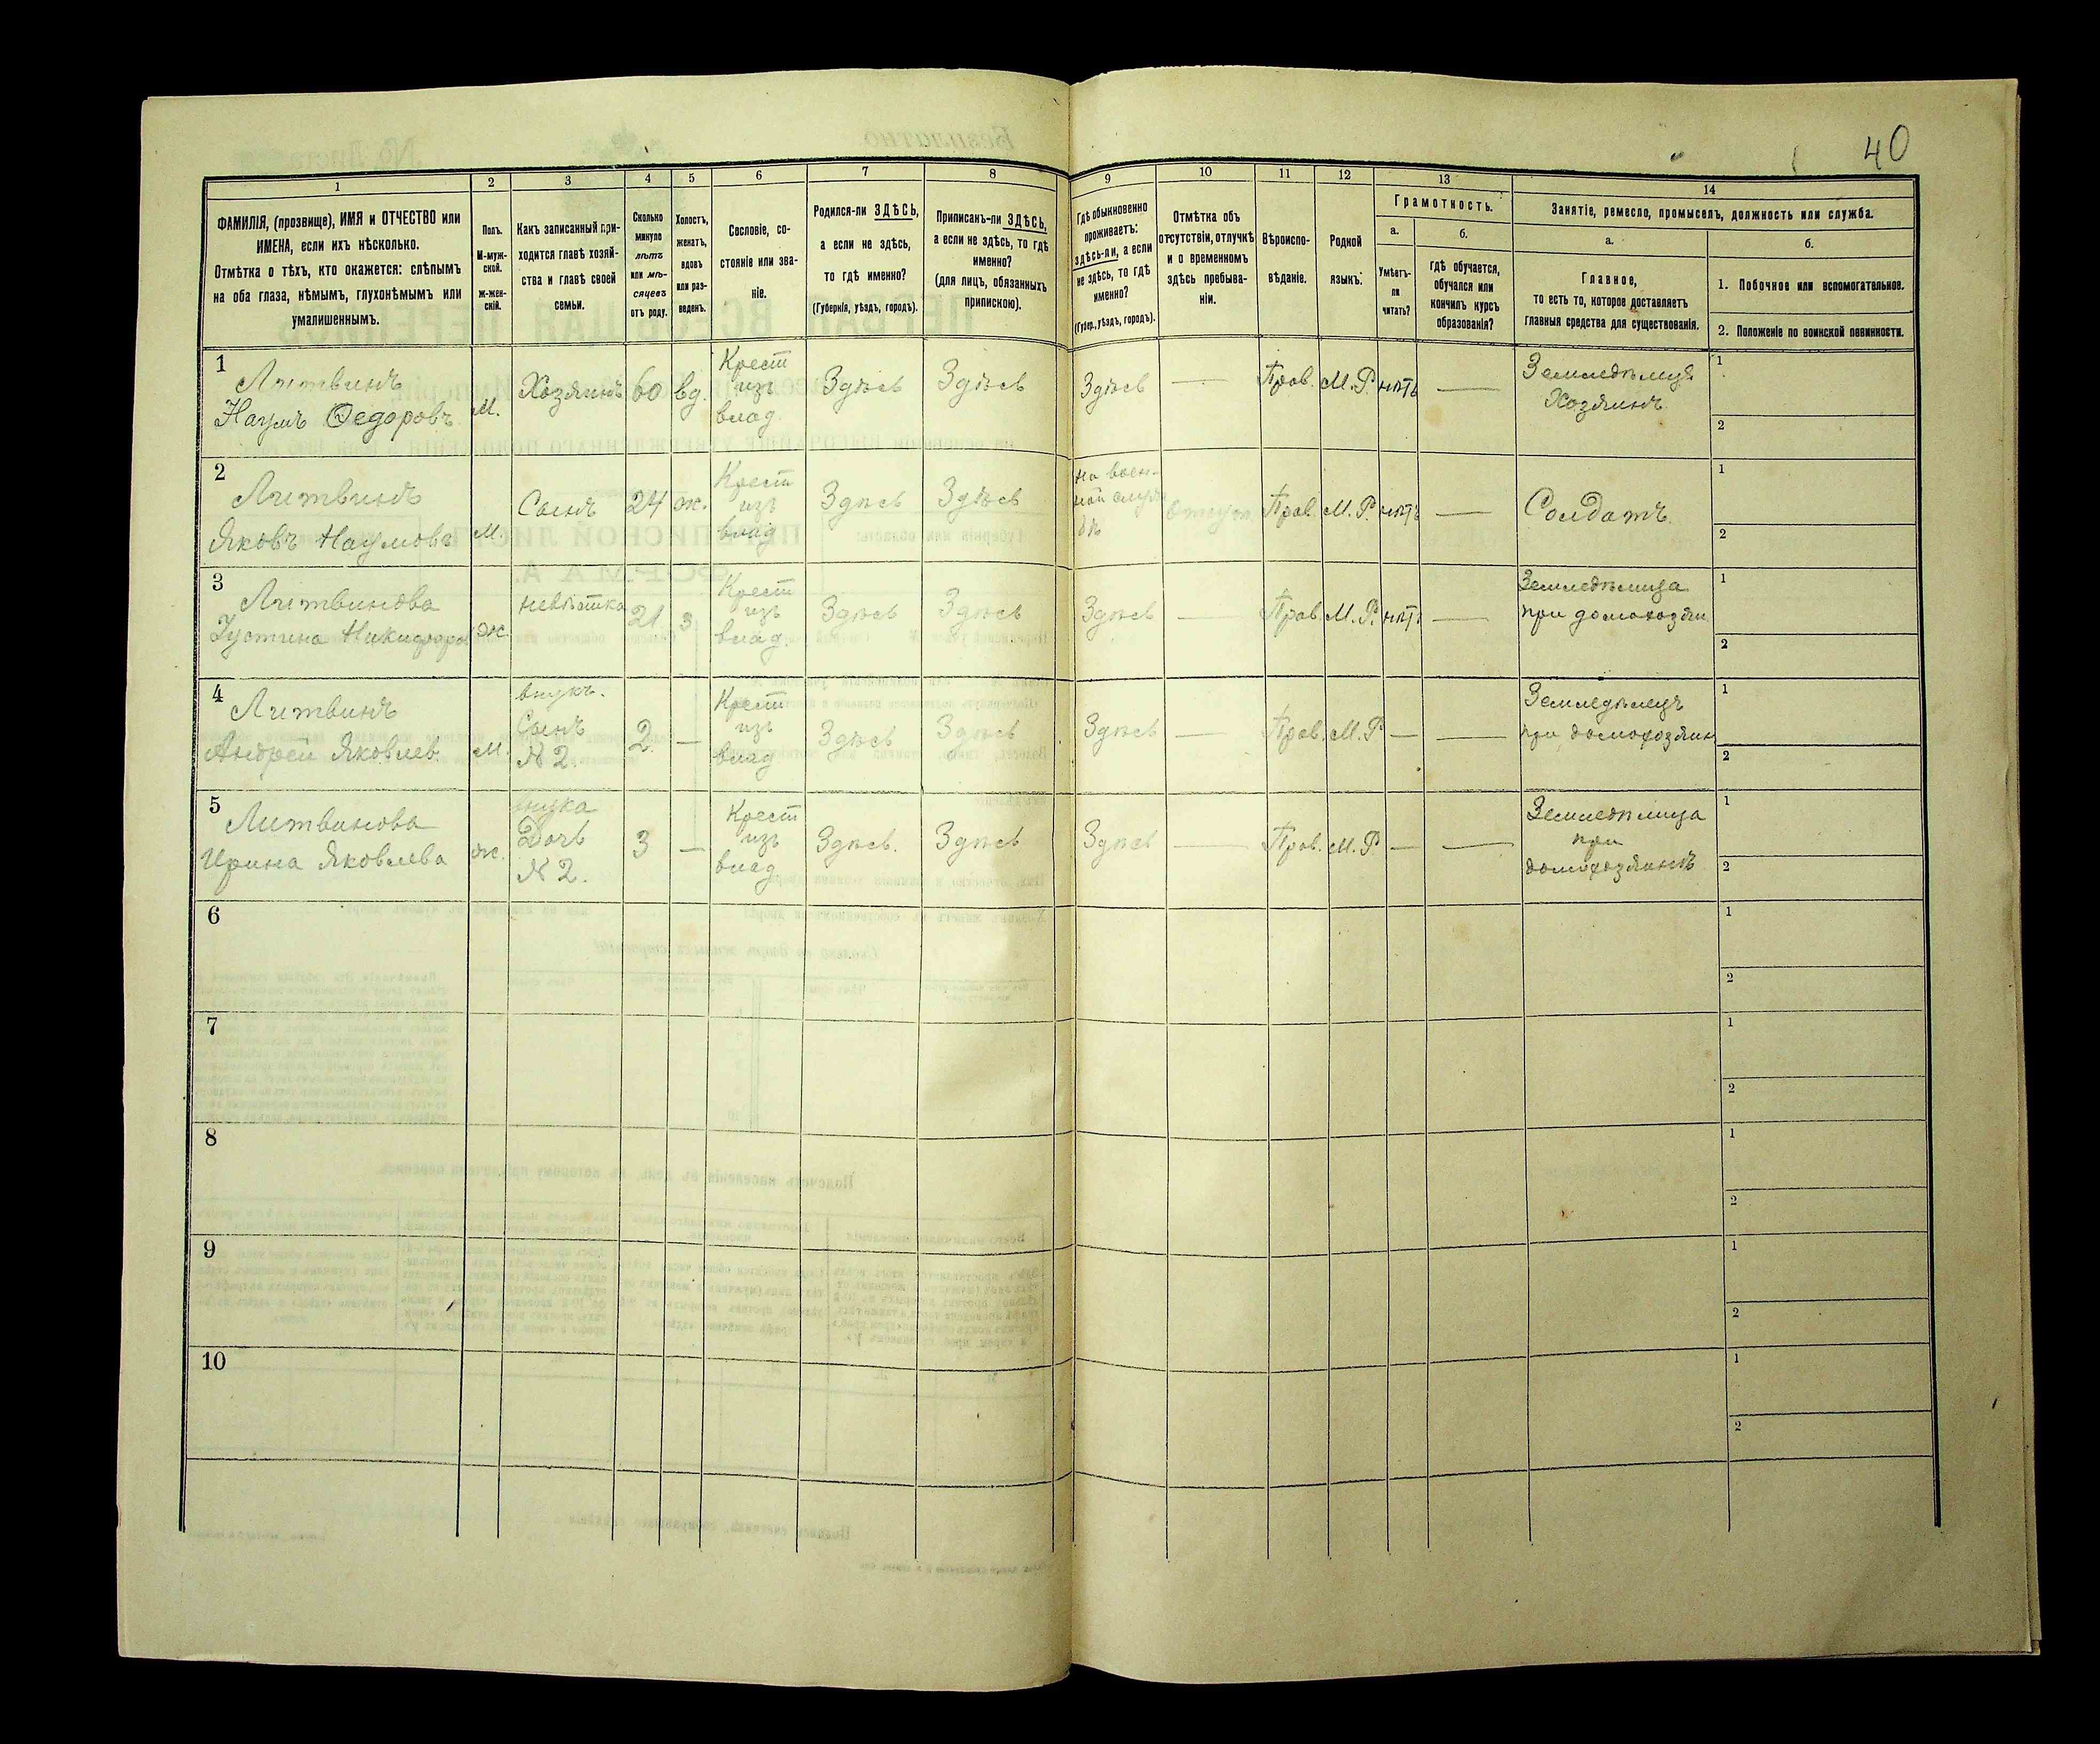 40
1
2
3
4
5
6
7
8
9
10
11
12
13
14
ФАМИЛІЯ, (прозвище), ИМЯ и ОТЧЕСТВО или
ИМЕНА, если ихъ нѣсколько.
Отмѣтка о тѣхъ, кто окажется: слѣпымъ
на оба глаза, нѣмымъ, глухонѣмымъ или
умалишеннымъ.
Полъ.
М-муж-
ской.
ж-жен-
скій.
Какъ записанный при-
ходится главѣ хозяй-
ства и главѣ своей
семьи.
Сколько
минуло
лѣтъ
или мѣ-
сяцевъ
отъ роду.
Холостъ,
женатъ,
вдовъ
или раз-
веденъ.
Сословіе, со-
стояніе или зва-
ніе.
Родился-ли ЗДѢСЬ,
а если не здѣсь,
то гдѣ именно?
(Губернія, уѣздъ, городъ).
Приписанъ-ли ЗДѢСЬ,
а если не здѣсь, то гдѣ
именно?
(для лицъ, обязанныхъ
припискою).
Гдѣ обыкновенно
проживаетъ:
здѣсь-ли, а если
не здѣсь, то гдѣ
именно?
(Губер., уѣздъ, городъ).
Отмѣтка объ
отсутствіи, отлучкѣ
и о временномъ
здѣсь пребыва-
ніи.
Вѣроиспо-
вѣданіе.
Родной
языкъ.
Грамотность.
а.
Умѣетъ-
ли
читать?
б.
гдѣ обучается,
обучался или
кончилъ курсъ
образованія?
Занятіе, ремесло, промыселъ, должность или служба.
а.
Главное,
то есть то, которое доставляетъ
главныя средства для существованія.
б.
1. Побочное или вспомогательное.
2. Положеніе по воинской повинности.
1
Литвинъ
Наумъ Ѳедоровъ
М.
Хозяинъ
60
вд.
Крест
изъ
влад.
Здѣсь
Здѣсь
Здѣсь
—
Прав.
М. Р.
нѣтъ
—
Земледѣлецъ
Хозяинъ
1
2
2
Литвинъ
Яковъ Наумовъ
М.
Сынъ
24
ж.
Крест
изъ
влад
Здѣсь
Здѣсь
На воен-
ной служ
бѣ
Прав.
М. Р.
нѣтъ
—
Солдатъ
1
2
3
Литвинова
Іустина Никифоро
ж
невѣстка
21
з
Крест
изъ
влад.
Здѣсь
Здѣсь
Здѣсь
—
Прав.
М. Р.
нѣтъ
—
Земледѣлица
при домохозяи
1
2
4
Литвинъ
Андрей Яковлев.
М.
внукъ.
Сынъ
№ 2.
2
—
Крест
изъ
влад
Здѣсь
Здѣсь
Здѣсь
—
Прав.
М. Р
—
—
Земледѣлецъ
при домохозяин
1
2
5
Литвинова
Ирина Яковлева
ж.
внука
Дочь
№ 2.
3
—
Крест
изъ
влад.
Здѣсь.
Здѣсь
Здѣсь
—
Прав.
М. Р.
—
—
Земледѣлица
при
домохозяинѣ
1
2
6
1
2
7
1
2
8
1
2
9
1
2
10
1
2